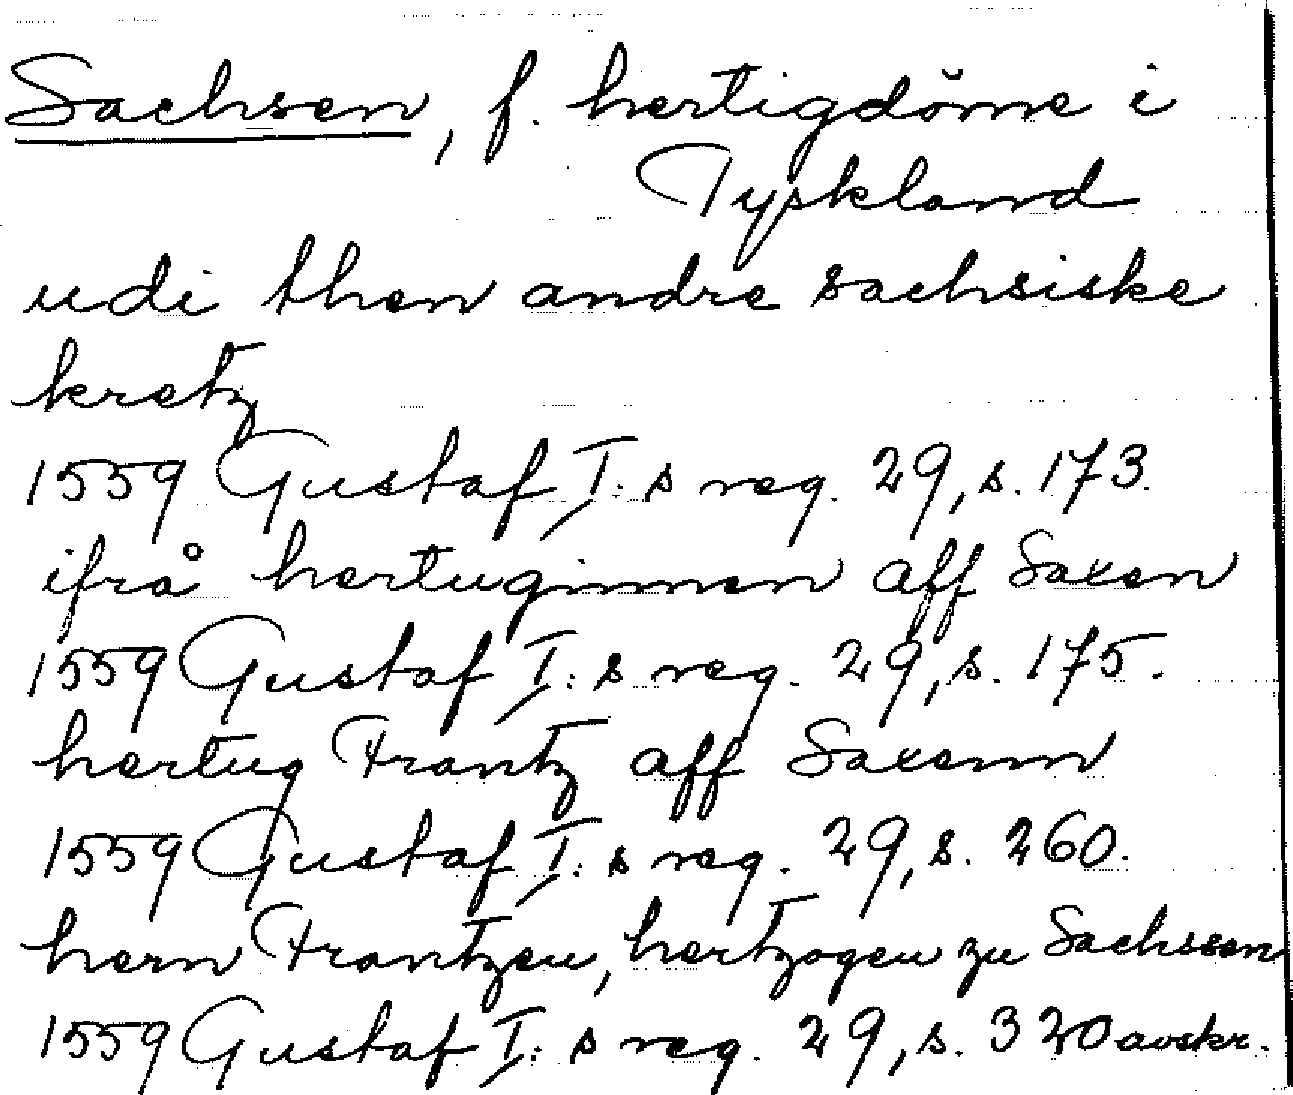 Sachsen, f. hertigdöme i
Tyskland
udi then andre sachsiske
kretz
1559 Gustaf I:s reg. 29, s. 173.
ifrå hertuginnen aff Saxen
1559 Gustaf I:s reg. 29, s. 175.
hertug Frantz aff Saxenn
1559 Gustaf I:s reg. 29, s. 260.
hern Frantzen, hertzogen zu Sachssen
1559 Gustaf I:s reg. 29, s. 320 avskr.